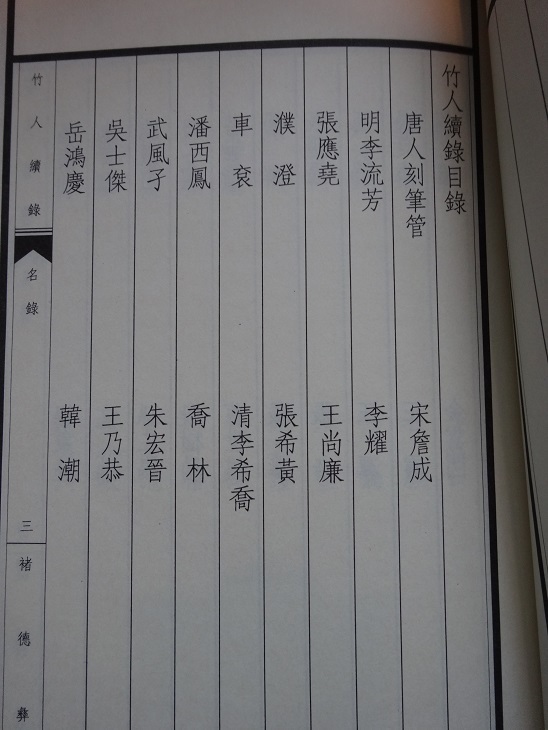 竹人續錄目錄
唐人刻筆管
宋詹成
明李流芳
李耀
張應堯
王尚廉
濮澄
張希黃
車衮
清李希喬
潘西鳳
喬林
武風子
朱宏晉
吳士傑
王乃恭
岳鴻慶
韓潮
竹人續錄
名錄
三
褚德彝